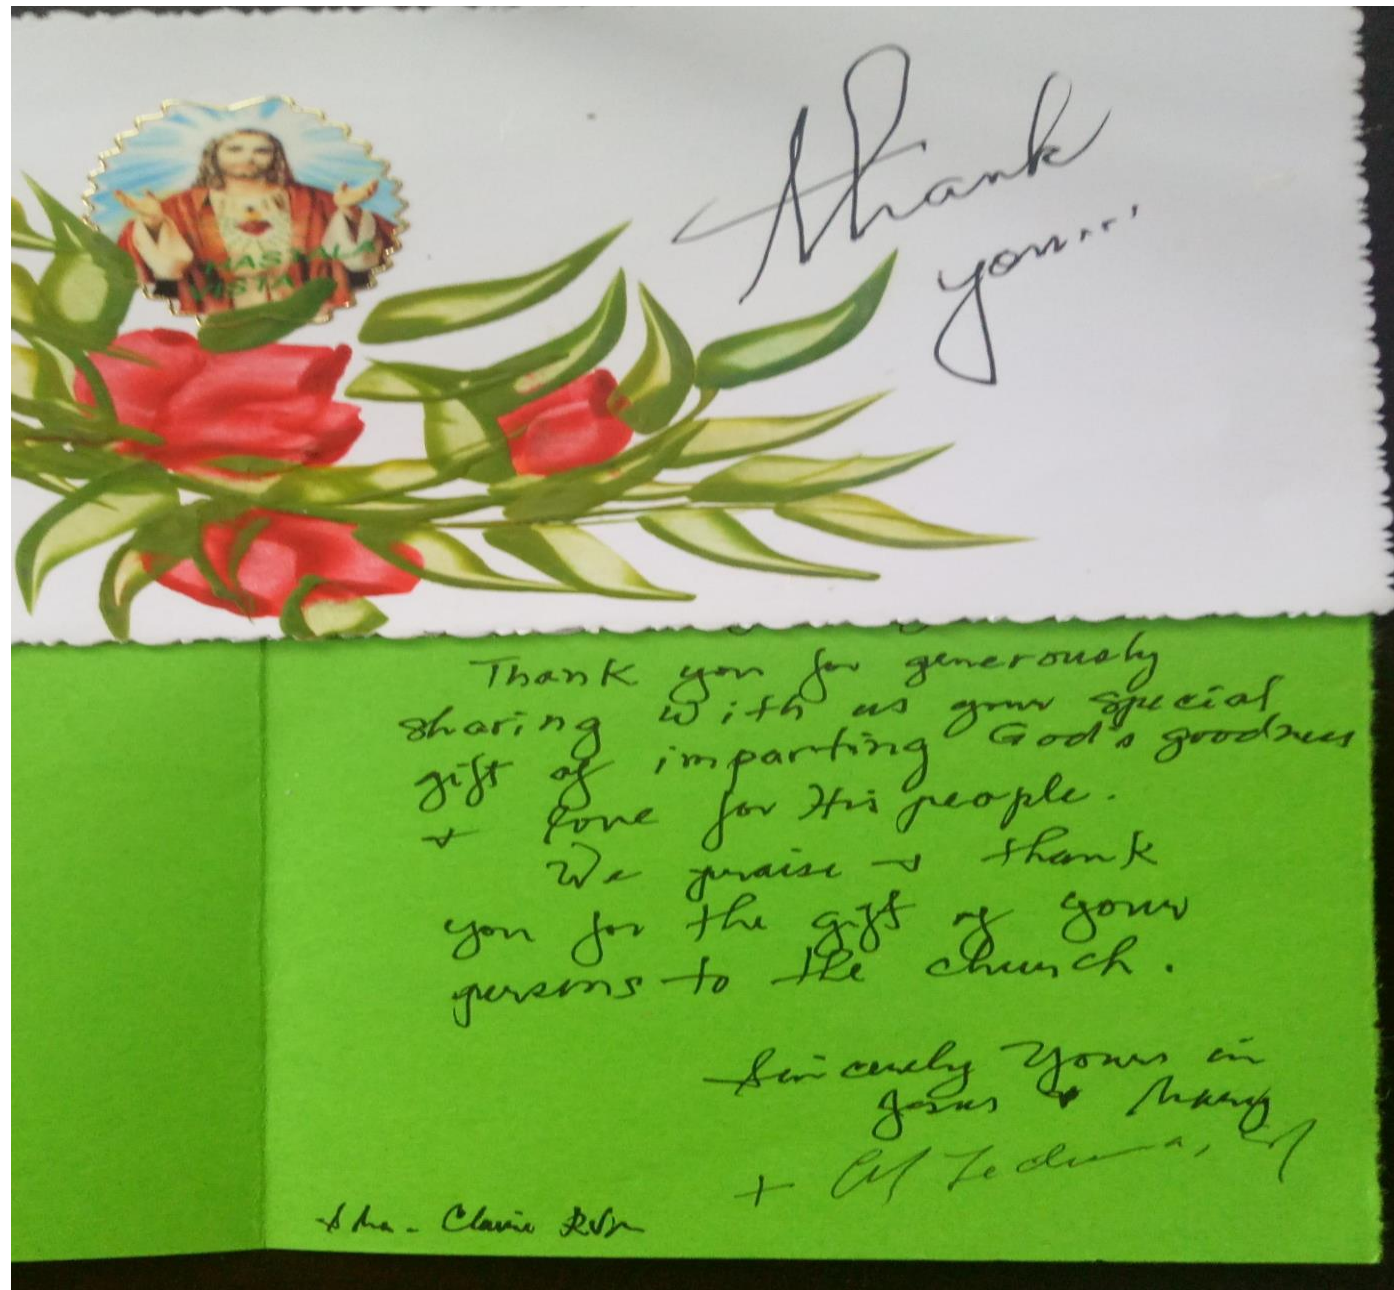 Thank
you...
Thank you for generously
sharing with us your special
gift of imparting God's goodness
+ love for His people.
We praise + thank
you for the gift of your
persons to the church.
Sincerely Yours in
Jesus + Mary
+